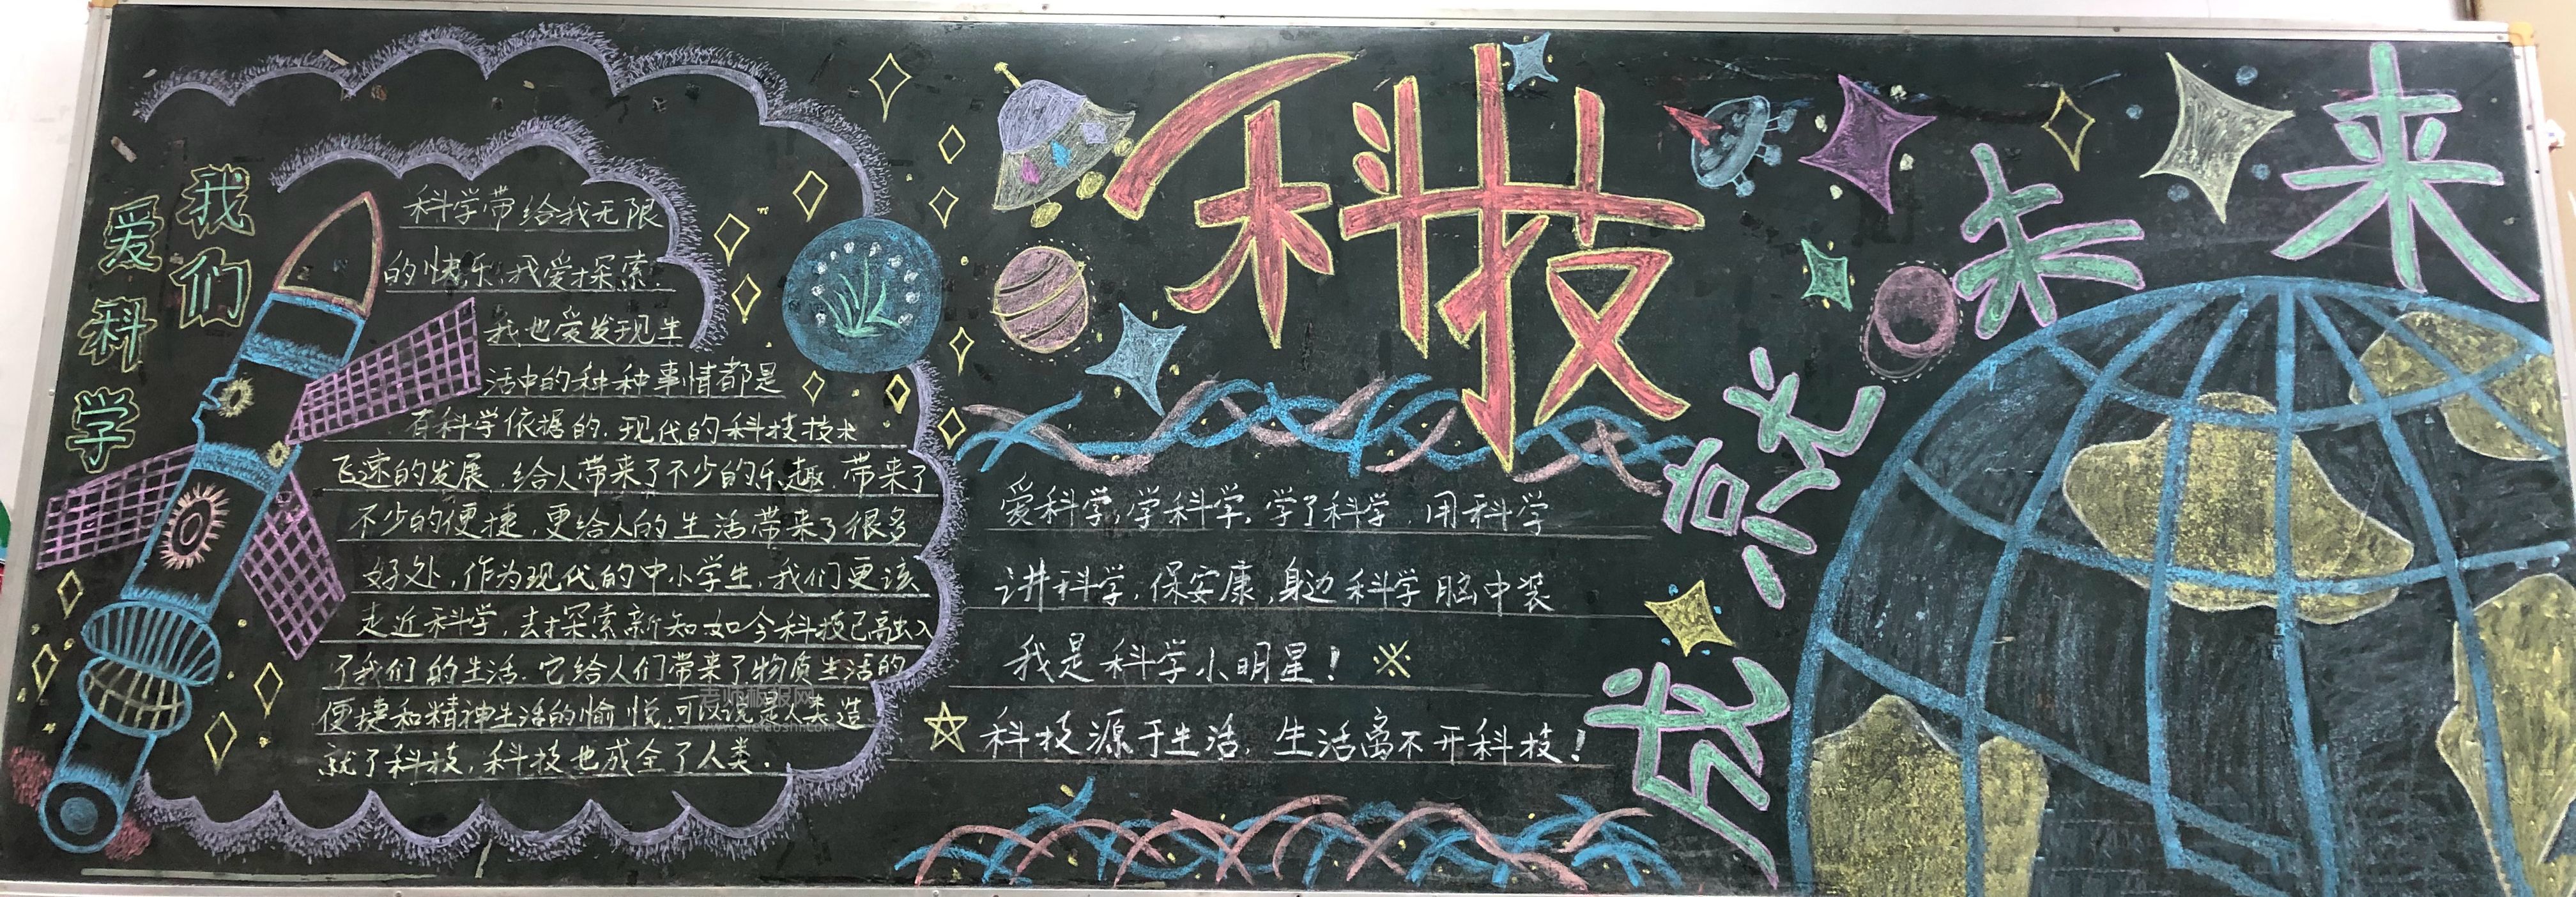 科技
成就未来
我们
爱科学
科学带给我无限
的快乐,我爱探索.
我也爱发现生
活中的种种事情都是
有科学依据的.现代的科技技术
飞速的发展.给人带来了不少的乐趣.带来了
不少的便捷,更给人的生活带来了很多
好处,作为现代的中小学生,我们更该
走近科学,去探索新知如今科技已融入
了我们的生活.它给人们带来了物质生活的
便捷和精神生活的愉悦,可以说是人类造
就了科技,科技也成全了人类.
爱科学,学科学,学了科学,用科学
讲科学,保安康,身边科学脑中装
我是科学小明星!※
科技源于生活,生活离不开科技!
老师板报网